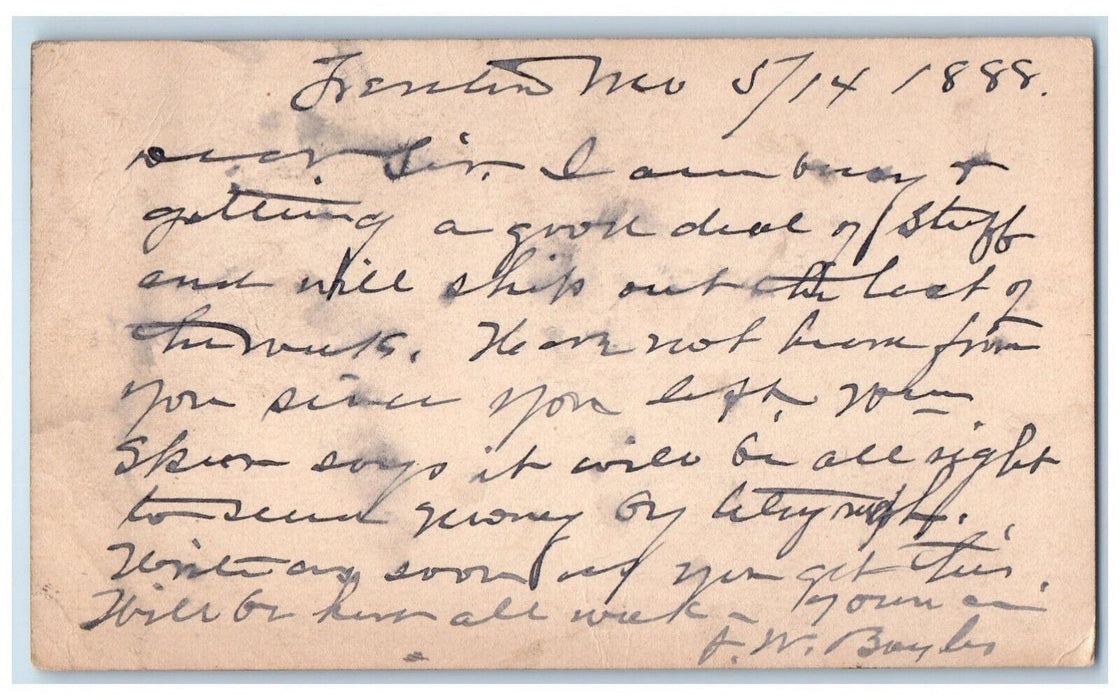 Trenton Mo 5/14 1888.
Dear Sir. I am busy +
getting a good deal of stuff
and will ship out the last of
the week. Have not heard from
you since you left. Wm
says it will be all right
to send money by telegraph.
Write as soon as you get this.
Will be here all week - Yours
W. Bayles